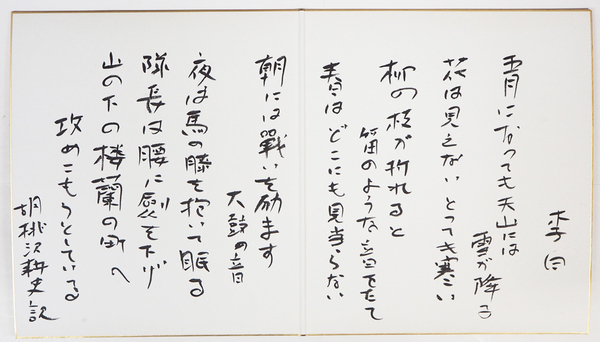 李白
五月になっても天山には
雪が降る
花は見えない とっても寒い
柳の枝が折れると
笛のような音をたて
春はどこにも見当らない
朝には戰いを励ます
大鼓の音
夜は馬の膝を抱いて眠る
隊長は腰に剣を下げ
山の下の楼蘭の町へ
攻めこもうとしている
胡桃沢耕史